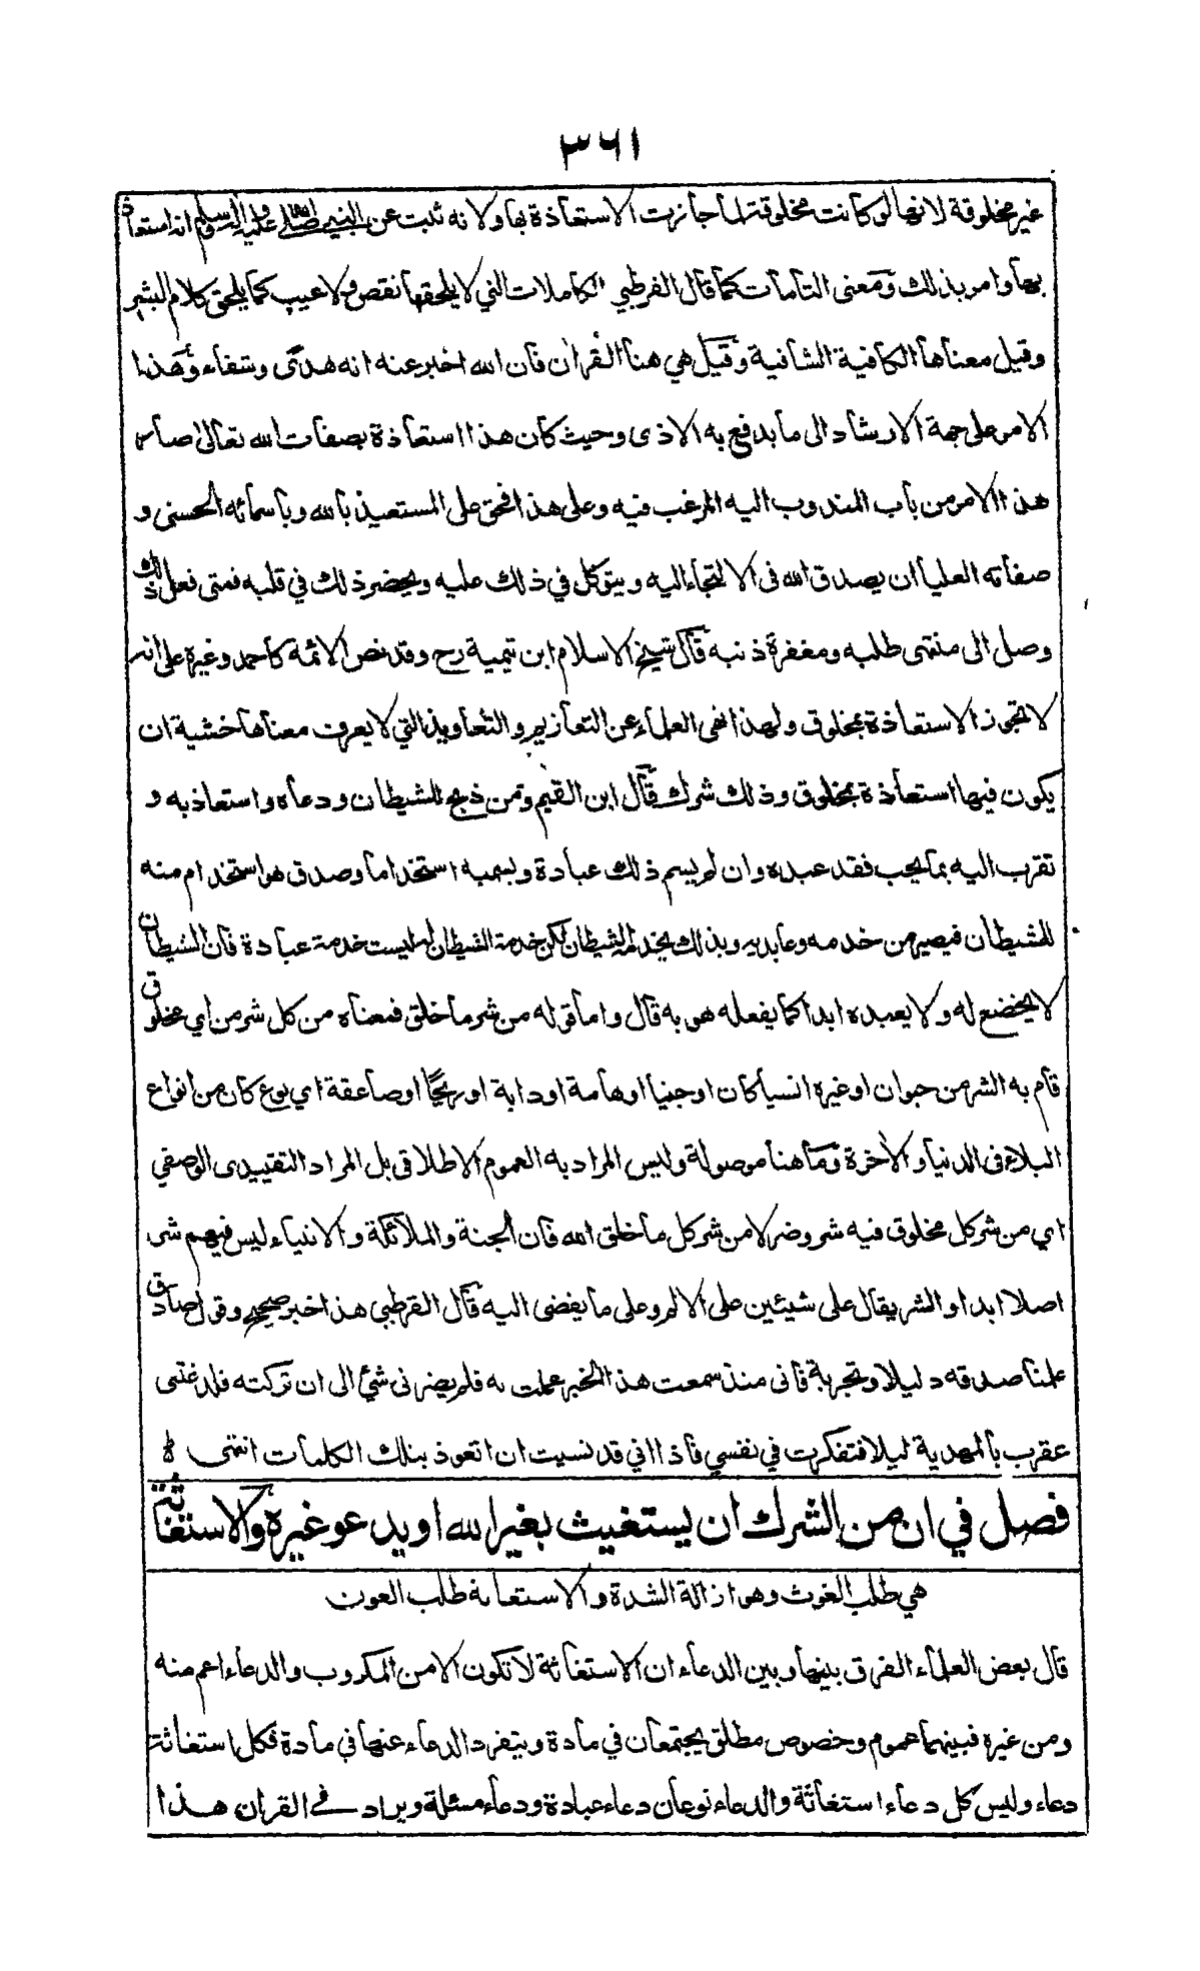 ٣٦١
غير مخلوقة لانها لو كانت مخلوقة لما جازت الاستعاذة بها ولانه ثبت عن النبي صلى الله عليه واله وسلم انه استعاذ
بها وامر بذلك ومعنى التامات كما قال القرطبي الكاملات التي لا يلحقها نقص ولا عيب كما يلحق كلام البشر
وقيل معناها الكافية الشافية وقيل هي هنا القران فان الله اخبر عنه انه هدى وشفاء وهذا
الامر على جهة الارشاد الى ما يدفع به الاذى وحيث كان هذا استعاذة بصفات الله تعالى صار
هذا الامر من باب المندوب اليه المرغب فيه وعلى هذا فحق على المستعيذ بالله وباسمائه الحسنى و
صفاته العليا ان يصدق الله في الالتجاء اليه ويتوكل في ذلك عليه ويحضر ذلك في قلبه فمتى فعل ذلك
وصل الى منتهى طلبه ومغفرة ذنبه قال شيخ الاسلام ابن تيمية رح وقد نص الائمة كاحمد وغيره على انه
لا تجوز الاستعاذة بمخلوق ولهذا نهى العلماء عن التعازيم والتعاويذ التي لا يعرف معناها خشية ان
يكون فيها استعاذة بمخلوق وذلك شرك قال ابن القيم ومن ذبح للشيطان ودعاه واستعاذ به و
تقرب اليه بما يحب فقد عبده وان لم يسم ذلك عبادة ويسميه استخداما وصدق هو استخدام منه
للشيطان فيصير من خدمه وعابديه وبذلك يخدمه الشيطان لكن خدمة الشيطان له ليست خدمة عبادة فان الشيطان
لا يخضع له ولا يعبده ابدا كما يفعله هو به قال واما قوله من شر ما خلق فمعناه من كل شر من اي مخلوق
قام به الشر من حيوان او غيره انسيا كان او جنيا او هامة او دابة او ريحا او صاعقة اي نوع كان من انواع
البلاء في الدنيا والاخرة وما هنا موصولة وليس المراد به العموم الاطلاقي بل المراد التقييدى الوصفي
اي من شر كل مخلوق فيه شر وضر لا من شر كل ما خلق الله فان الجنة والملائكة والانبياء ليس فيهم شر
اصلا ابدا والشر يقال على شيئين على الالم وعلى ما يفضى اليه قال القرطبي هذا خبر صحيح وقول صادق
علمنا صدقه دليلا وتجربة فانى منذ سمعت هذا الخبر عملت به فلم يضرنى شئ الى ان تركته فلدغتنى
عقرب بالمهدية ليلا فتفكرت في نفسي فاذا اني قد نسيت ان اتعوذ بتلك الكلمات انتهى
فصل في ان من الشرك ان يستغيث بغير الله او يدعو غيره والاستغاثة
هي طلب الغوث وهو ازالة الشدة والاستعانة طلب العون
قال بعض العلماء الفرق بينها وبين الدعاء ان الاستغاثة لا تكون الا من المكروب والدعاء اعم منه
ومن غيره فبينهما عموم وخصوص مطلق يجتمعان في مادة ويتفرد الدعاء عنها في مادة فكل استغاثة
دعاء وليس كل دعاء استغاثة والدعاء نوعان دعاء عبادة ودعاء مسئلة ويراد في القران هذا